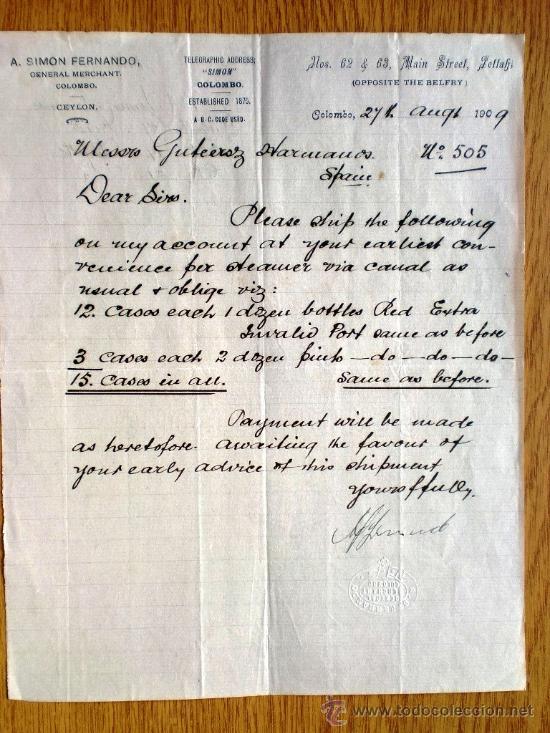 A. SIMON FERNANDO,
GENERAL MERCHANT.
COLOMBO.
CEYLON.
TELEGRAPHIC ADDRESS;
"SIMON"
COLOMBO.
ESTABLISHED 1875.
A B C CODE USED.
Nos. 62 & 63, Main Street, Pettah
(OPPOSITE THE BELFRY)
Colombo, 27th Augt 1909
Messrs Gutierez Harmanos. No. 505
Spain
Dear Sirs.
Please ship the following
on my account at your earliest con-
venience per steamer via canal as
usual & oblige viz:
12. Cases each 1 dozen bottles Red Extra
Invalid Port same as before
3 cases each 2 dozen pints —do—do—do—
15. Cases in all. Same as before.
Payment will be made
as heretofore. awaiting the favour of
your early advice of this shipment
yours ffully.
www.todocoleccion.net